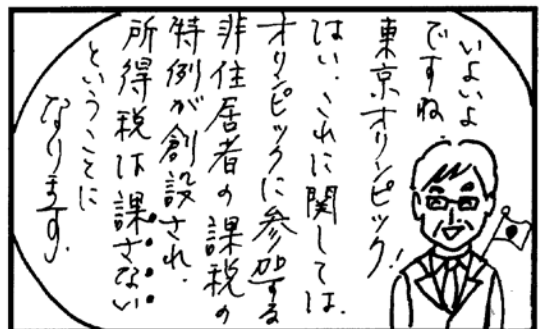 いよいよ
ですね
東京オリンピック!
はい、これに関しては、
オリンピックに参加する
非住居者の課税の
特例が創設され、
所得税は課さない
ということに
なります。